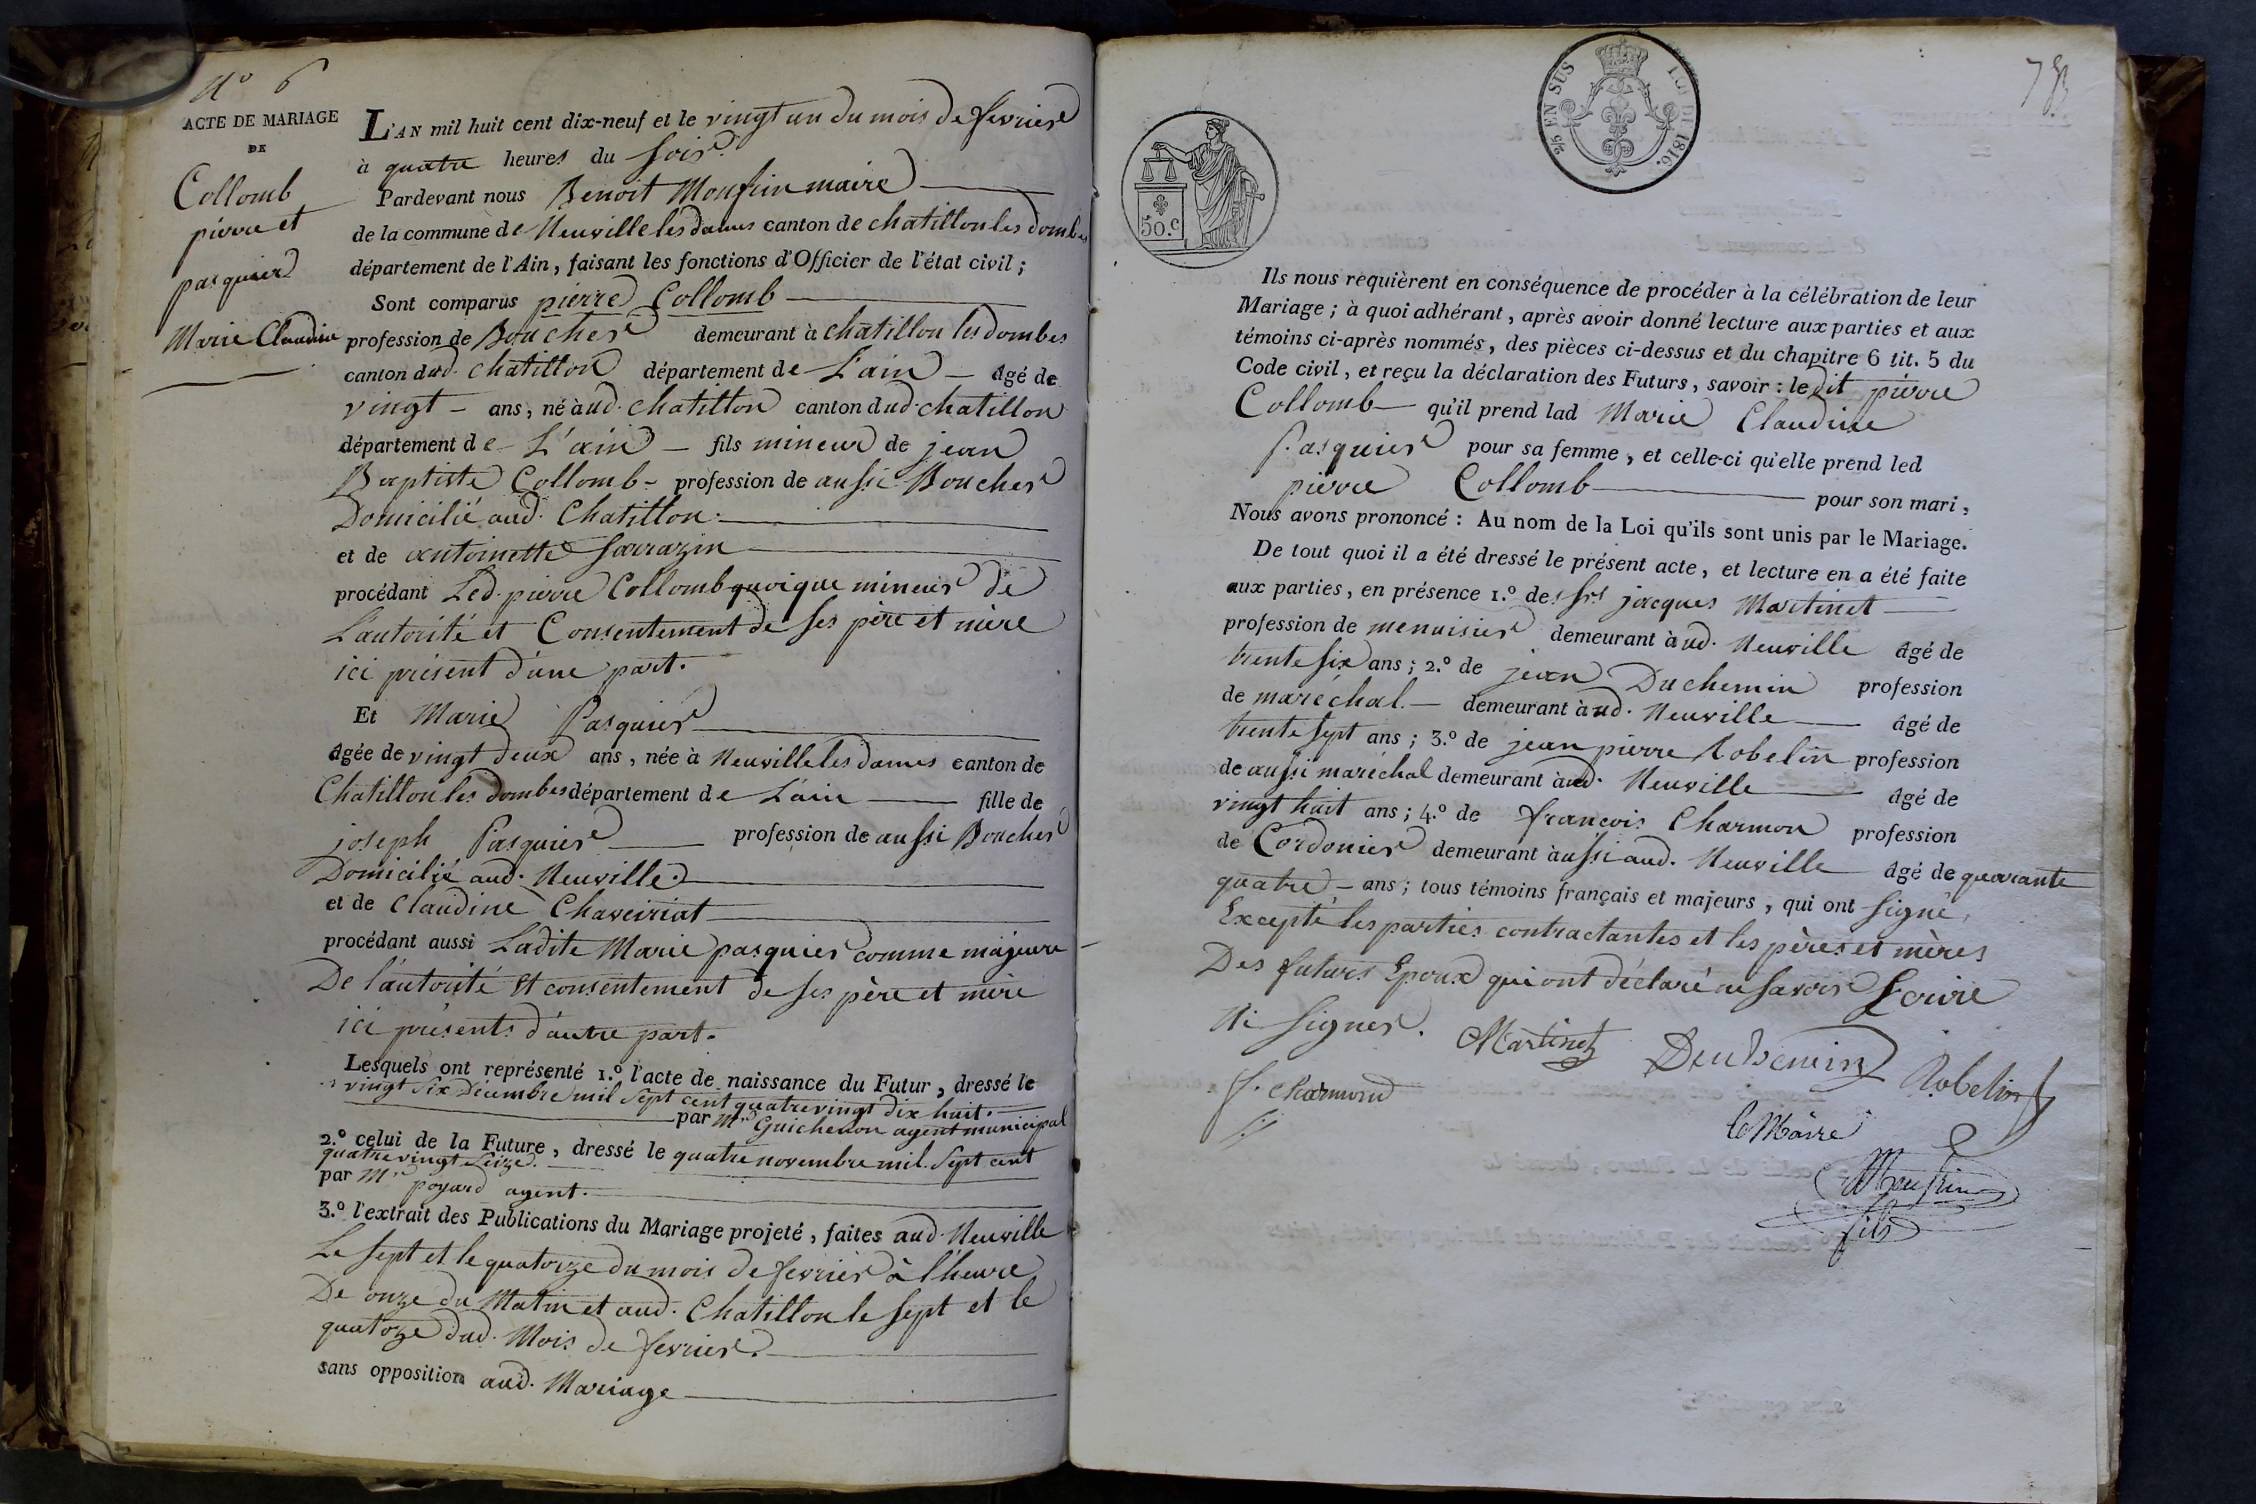 N° 6
ACTE DE MARIAGE
DE
Collomb
pierre et
pasquier
Marie Claudine
L'AN mil huit cent dix-neuf et le vingt un du mois De fevrier
à quatre heures du soir.
Pardevant nous Benoit Monfrin maire
de la commune de Neuville les dames canton de chatillon les dombes
département de l'Ain, faisant les fonctions d'Officier de l'état civil;
Sont comparus pierre Collomb
profession de Boucher demeurant à chatillon les dombes
canton dud. chatillon département de L'ain âgé de
vingt ans, né àud. chatillon canton dud. chatillon
département de L'ain fils mineur de jean
Baptiste Collomb profession de aussi Boucher
Domicilié aud. Chatillon.
et de antoinette sarrazin
procédant Led. pierre Collomb quoique mineur de
L'autorité et Consentement de ses père et mère
ici présent d'une part.
Et Marie Pasquier
âgée de vingt deux ans, née à Neuville les dames canton de
Chatillon les dombes département de L'ain fille de
joseph Pasquier profession de aussi Boucher
Domicilié aud. Neuville.
et de Claudine Chaveiriat
procédant aussi Ladite Marie pasquier comme majeure
De l'autorité et consentement de ses père et mère
ici présents d'autre part.
Lesquels ont représenté 1.° l'acte de naissance du Futur, dressé le
vingt six Décembre mil sept cent quatre vingt dix huit.
par Mr Guichenon agent municipal
2.° celui de la Future, dressé le quatre novembre mil. sept cent
quatre vingt seize.
par Mr poyard agent.
3.° l'extrait des Publications du Mariage projeté, faites aud. Neuville
Le sept et le quatorze du mois de fevrier à l'heure
De onze du Matin et aud. Chatillon le sept et le
quatorze dud. Mois de fevrier.
sans opposition aud. Mariage
50.C
2/5 EN SUS LOI DE 1816.
Ils nous requièrent en conséquence de procéder à la célébration de leur
Mariage; à quoi adhérant, après avoir donné lecture aux parties et aux
témoins ci-après nommés, des pièces ci-dessus et du chapitre 6 tit. 5 du
Code civil, et reçu la déclaration des Futurs, savoir : le dit pierre
Collomb qu'il prend lad Marie Claudine
Pasquier pour sa femme, et celle-ci qu'elle prend led
pierre Collomb pour son mari,
Nous avons prononcé : Au nom de la Loi qu'ils sont unis par le Mariage.
De tout quoi il a été dressé le présent acte, et lecture en a été faite
aux parties, en présence 1.° des srs jacques Martinet
profession de menuisier demeurant àud. Neuville âgé de
trente six ans; 2.° de jean Duchemin profession
de maréchal. demeurant àud. Neuville âgé de
trente sept ans; 3.° de jean pierre Robelin profession
de aussi maréchal demeurant àud. Neuville âgé de
vingt huit ans; 4.° de francois Charmon profession
de Cordonier demeurant àussi aud. Neuville âgé de quarante
quatre ans; tous témoins français et majeurs, qui ont signé,
Excepté les parties contractantes et les pères et mères
Des futurs Epoux qui ont déclaré ne savoir Ecrire
Ni signer. Martinet Duchemin Robelin
f. charmond
le Maire
Monfrin
fils